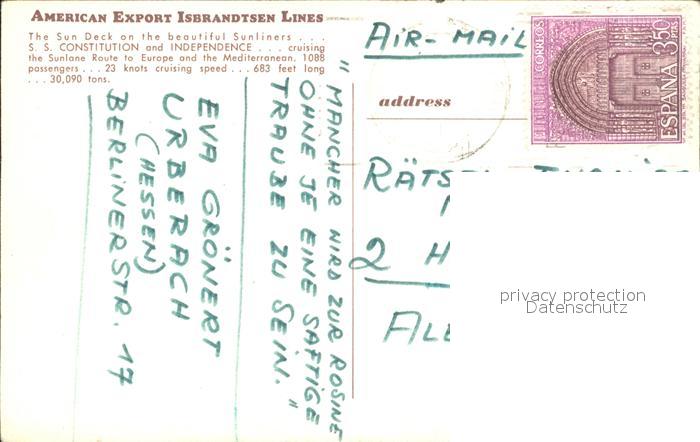 AMERICAN EXPORT ISBRANDTSEN LINES
The Sun Deck on the beautiful Sunliners . . .
S. S. CONSTITUTION and INDEPENDENCE . . . cruising
the Sunlane Route to Europe and the Mediterranean. 1088
passengers . . . 23 knots cruising speed . . . 683 feet long
. . . 30,090 tons.
"MANCHER WIRD ZUR ROSINE
OHNE JE EINE SAFTIGE
TRAUBE ZU SEIN."
EVA GRÖNERT
URBERACH
(HESSEN)
BERLINERSTR. 17
AIR-MAIL
CORREOS
ESPAÑA 3'50 PTS
address
2 H
privacy protection
Datenschutz